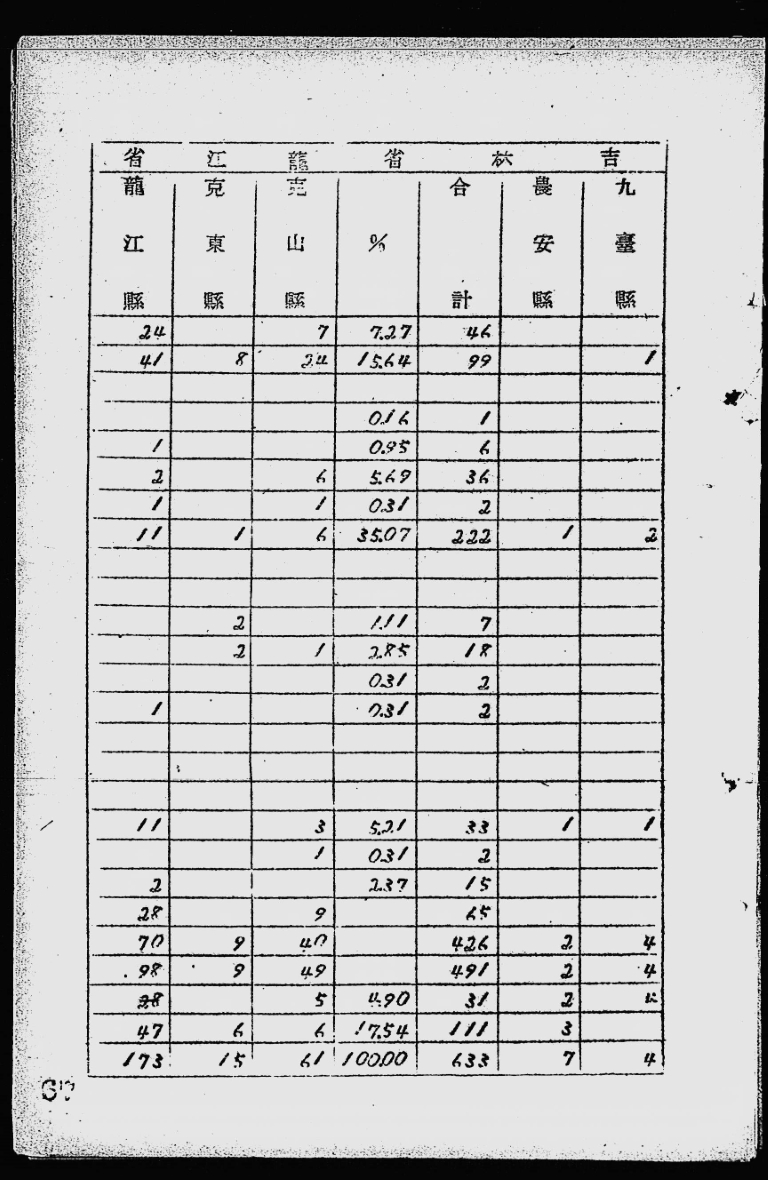 省 江 龍 省 林 吉
龍江縣 克東縣 克山縣 % 合計 農安縣 九臺縣
24 7 7.27 46
41 8 24 15.64 99 1
0.16 1
1 0.95 6
2 6 5.69 36
1 1 0.31 2
11 1 6 35.07 222 1 2
2 1.11 7
2 1 2.85 18
0.31 2
1 0.31 2
11 3 5.21 33 1 1
1 0.31 2
2 2.37 15
28 9 65
70 9 40 426 2 4
98 9 49 491 2 4
28 5 4.90 31 2
47 6 6 17.54 111 3
173 15 61 100.00 633 7 4